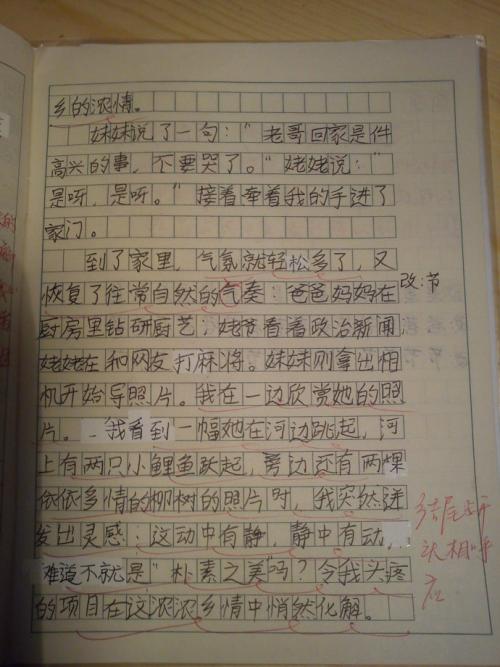 乡的浓情。
妹妹说了一句：“老哥回家是件
高兴的事，不要哭了。“姥姥说：”
是呀，是呀。”接着牵着我的手进了
家门。
到了家里，气氛就轻松多了，又
恢复了往常自然的气奏：爸爸妈妈在
改：节
厨房里钻研厨艺；姥爷看着政治新闻；
姥姥在和网友打麻将。妹妹则拿出相
机开始导照片。我在一边欣赏她的照
片。我看到一幅她在河边跳起，河
上有两只小鲤鱼跃起，旁边还有两棵
依依多情的柳树的照片时，我突然迸
发出灵感：这动中有静，静中有动，
难道不就是“朴素之美”吗？令我头疼
的项目在这浓浓乡情中悄然化解。
结尾与开
头相呼
应